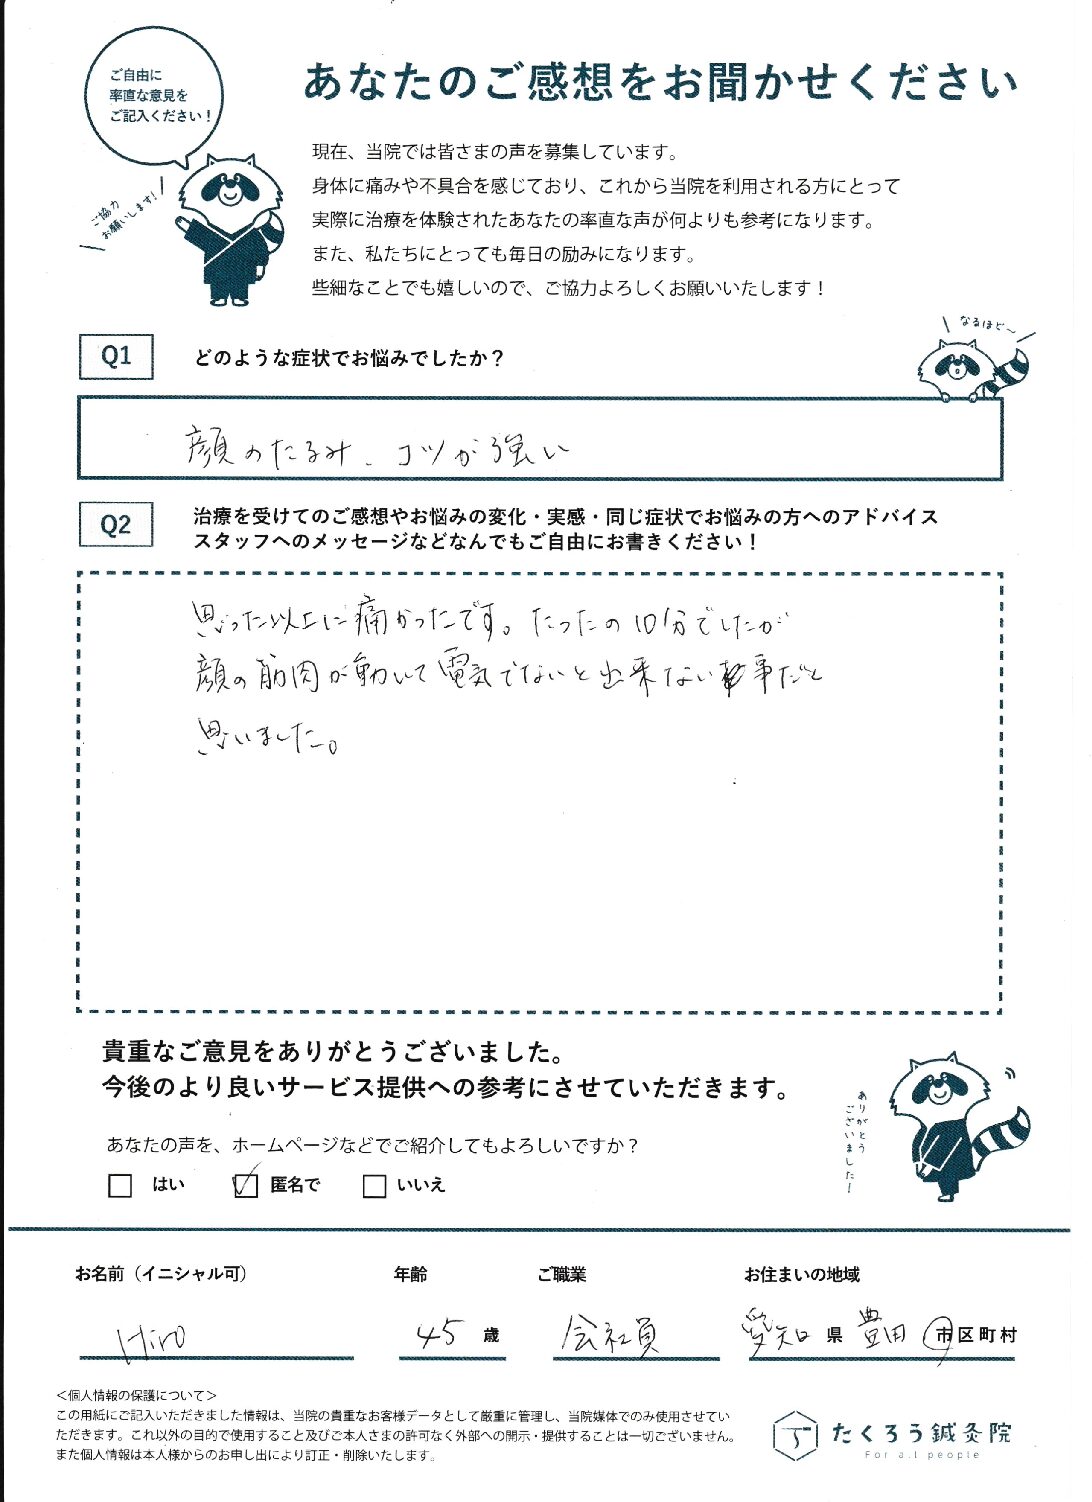 ご自由に
率直な意見を
ご記入ください！
あなたのご感想をお聞かせください
ご協力
お願いします！
現在、当院では皆さまの声を募集しています。
身体に痛みや不具合を感じており、これから当院を利用される方にとって
実際に治療を体験されたあなたの率直な声が何よりも参考になります。
また、私たちにとっても毎日の励みになります。
些細なことでも嬉しいので、ご協力よろしくお願いいたします！
なるほど〜
Q1 どのような症状でお悩みでしたか？
顔のたるみ、コツが強い
Q2 治療を受けてのご感想やお悩みの変化・実感・同じ症状でお悩みの方へのアドバイス
スタッフへのメッセージなどなんでもご自由にお書きください！
思った以上に痛かったです。たったの10分でしたが
顔の筋肉が動いて電気でないと出来ない事だと
思いました。
貴重なご意見をありがとうございました。
今後のより良いサービス提供への参考にさせていただきます。
ありがとう
ございました！
あなたの声を、ホームページなどでご紹介してもよろしいですか？
はい 匿名で いいえ
お名前（イニシャル可） 年齢 ご職業 お住まいの地域
Hiro 45 歳 会社員 愛知 県 豊田 市区町村
＜個人情報の保護について＞
この用紙にご記入いただきました情報は、当院の貴重なお客様データとして厳重に管理し、当院媒体でのみ使用させてい
ただきます。これ以外の目的で使用すること及びご本人さまの許可なく外部への開示・提供することは一切ございません。
また個人情報は本人様からのお申し出により訂正・削除いたします。
たくろう鍼灸院
For all people